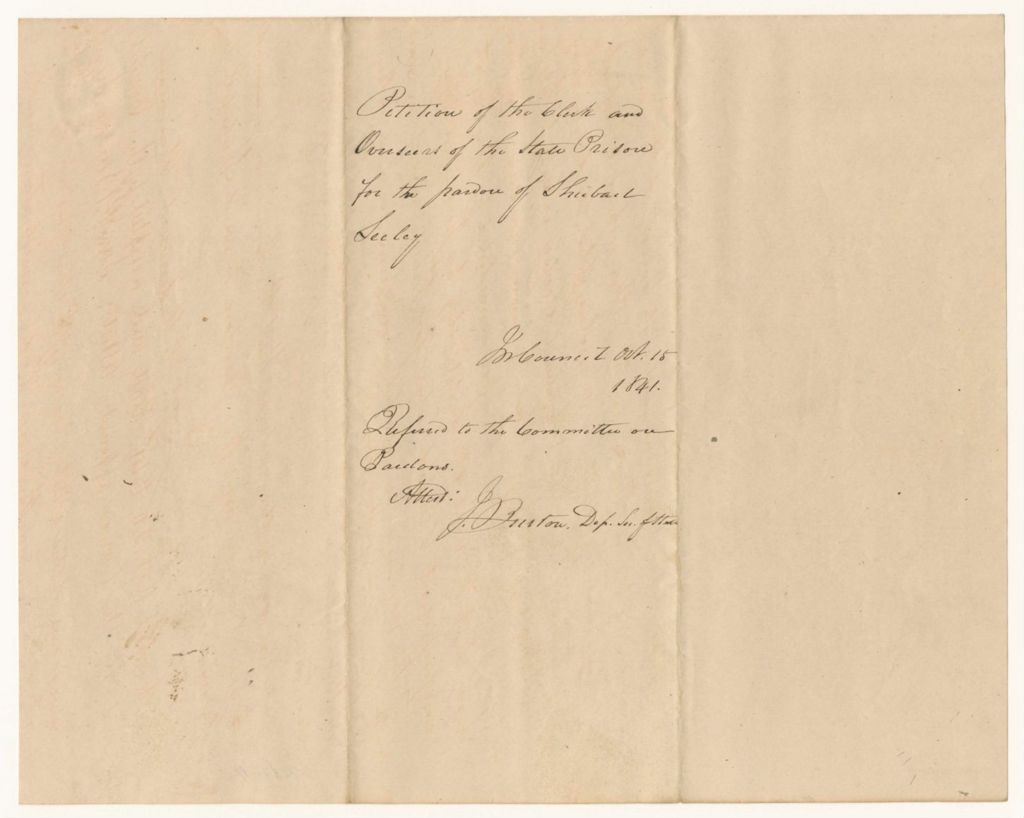 Petition of the Clerk and
Overseers of the State Prison
for the pardon of
Seeley
In Council Oct. 15
1841.
Referred to the Committee on
Pardons.
Attest:
Dep. Sec. of State